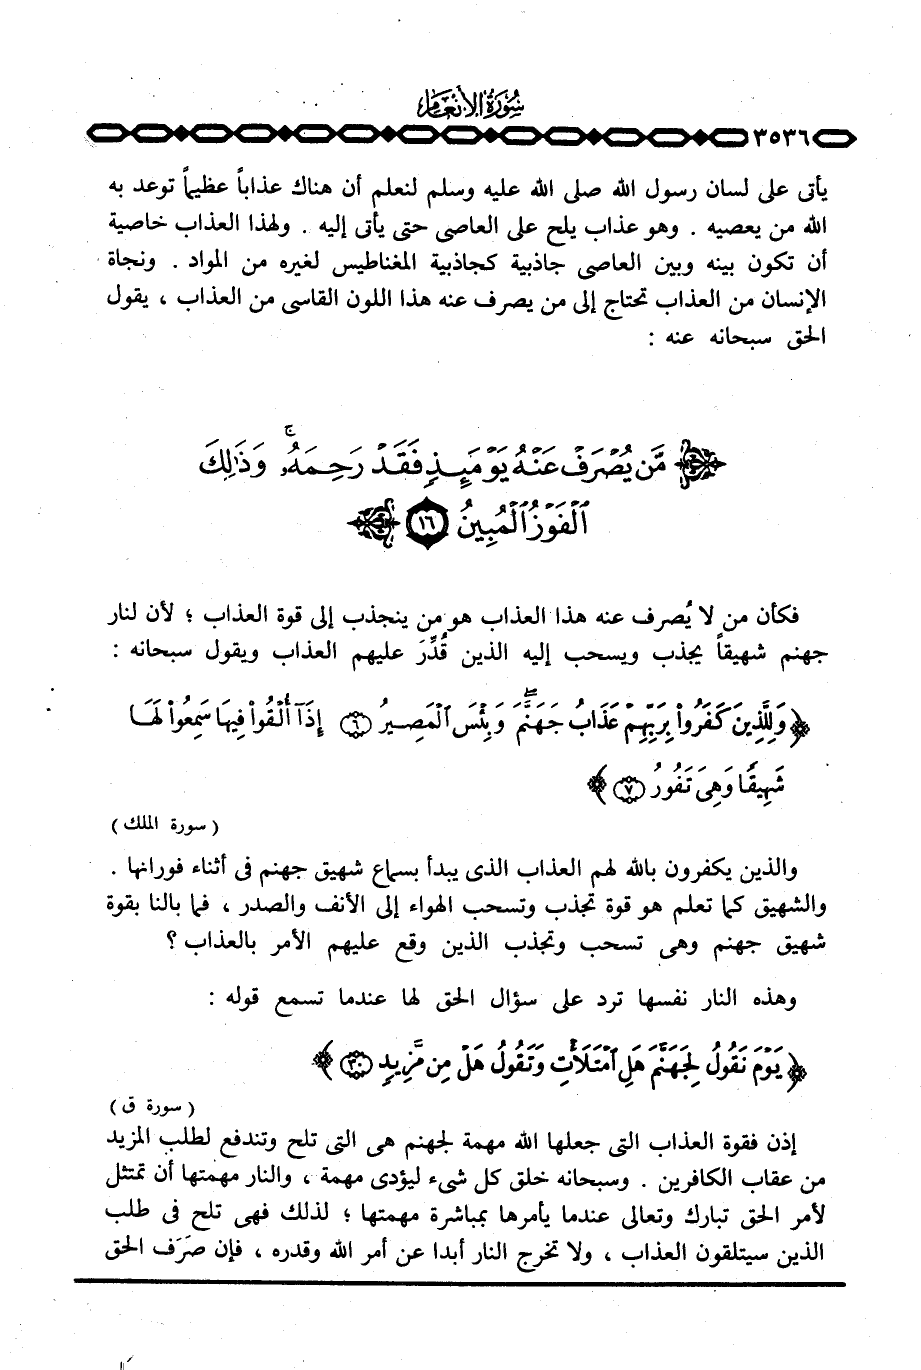 سُورَةُ الأَنْعَام
٣٥٣٦
يأتى على لسان رسول الله صلى الله عليه وسلم لنعلم أن هناك عذاباً عظيماً توعد به
الله من يعصيه . وهو عذاب يلح على العاصى حتى يأتى إليه . ولهذا العذاب خاصية
أن تكون بينه وبين العاصى جاذبية كجاذبية المغناطيس لغيره من المواد . ونجاة
الإنسان من العذاب تحتاج إلى من يصرف عنه هذا اللون القاسى من العذاب ، يقول
الحق سبحانه عنه :
مَّن يُصْرَفْ عَنْهُ يَوْمَئِذٍ فَقَدْ رَحِمَهُۥ ۚ وَذَٰلِكَ
ٱلْفَوْزُ ٱلْمُبِينُ ١٦
فكأن من لا يُصرف عنه هذا العذاب هو من ينجذب إلى قوة العذاب ؛ لأن لنار
جهنم شهيقاً يجذب ويسحب إليه الذين قُدِّرَ عليهم العذاب ويقول سبحانه :
﴿ وَلِلَّذِينَ كَفَرُوا۟ بِرَبِّهِمْ عَذَابُ جَهَنَّمَ ۖ وَبِئْسَ ٱلْمَصِيرُ ٦ إِذَآ أُلْقُوا۟ فِيهَا سَمِعُوا۟ لَهَا
شَهِيقًا وَهِىَ تَفُورُ ٧ ﴾
( سورة الملك )
والذين يكفرون بالله لهم العذاب الذى يبدأ بسماع شهيق جهنم فى أثناء فورانها .
والشهيق كما تعلم هو قوة تجذب وتسحب الهواء إلى الأنف والصدر ، فما بالنا بقوة
شهيق جهنم وهى تسحب وتجذب الذين وقع عليهم الأمر بالعذاب ؟
وهذه النار نفسها ترد على سؤال الحق لها عندما تسمع قوله :
﴿ يَوْمَ نَقُولُ لِجَهَنَّمَ هَلِ ٱمْتَلَأْتِ وَتَقُولُ هَلْ مِن مَّزِيدٍ ٣٠ ﴾
( سورة ق )
إذن فقوة العذاب التى جعلها الله مهمة لجهنم هى التى تلح وتندفع لطلب المزيد
من عقاب الكافرين . وسبحانه خلق كل شىء ليؤدى مهمة ، والنار مهمتها أن تمتثل
لأمر الحق تبارك وتعالى عندما يأمرها بمباشرة مهمتها ؛ لذلك فهى تلح فى طلب
الذين سيتلقون العذاب ، ولا تخرج النار أبدا عن أمر الله وقدره ، فإن صَرَف الحق